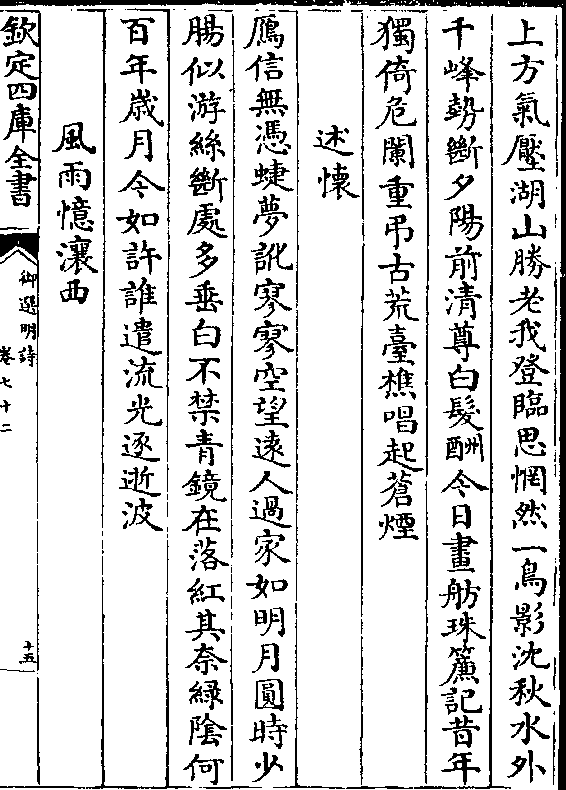 上方氣壓湖山勝老我登臨思惘然一鳥影沈秋水外
千峰勢斷夕陽前清尊白髮酬今日畫舫珠簾記昔年
獨倚危闌重弔古荒臺樵唱起蒼煙
述懷
鴈信無憑蜨夢訛寥寥空望遠人過家如明月圓時少
腸似游絲斷處多垂白不禁青鏡在落紅其奈綠陰何
百年歲月今如許誰遣流光逐逝波
風雨憶瀼西
欽定四庫全書
御選明詩
卷七十二
十五